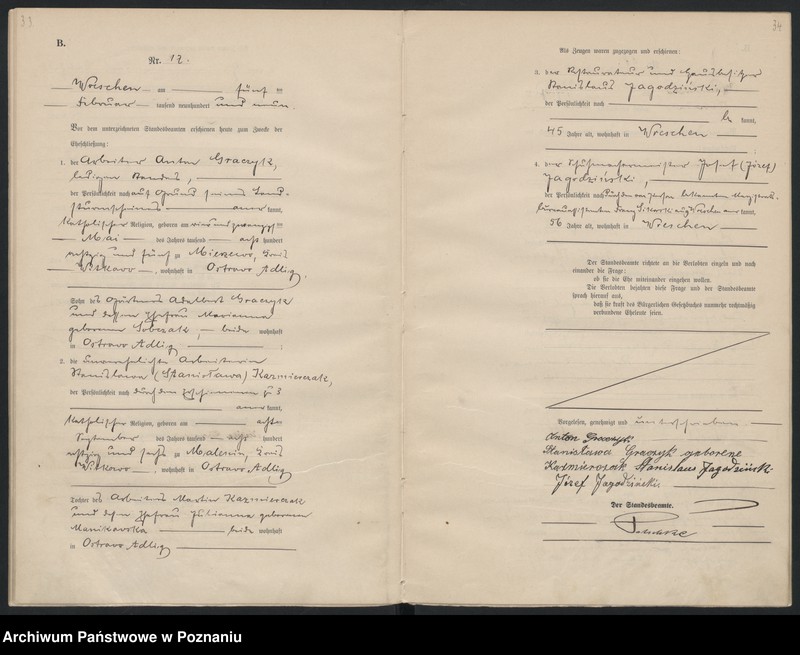 33
B.
Nr. 12.
Wreschen am fünf ten
Februar tausend neunhundert und neun.
Vor dem unterzeichneten Standesbeamten erschienen heute zum Zwecke der
Eheschließung:
1. der Arbeiter Anton Graczyk,
ledigen Standes,
der Persönlichkeit nach auf Grund seines Land-
sturmscheines anerkannt,
katholischer Religion, geboren am ein und zwanzigsten
Mai des Jahres tausend acht hundert
achtzig und fünf zu Mierzewo, Kreis
Witkowo, wohnhaft in Ostrowo Adlig.
Sohn des Adalbert Graczyk
und dessen Ehefrau Marianna
geborenen Sobczak, beide wohnhaft
in Ostrowo Adlig;
2. die unverehelichte Arbeiterin
Stanislawa (Stanisława) Kazmierczak,
der Persönlichkeit nach durch den Erschienenen zu 3
anerkannt,
katholischer Religion, geboren am achten
September des Jahres tausend acht hundert
achtzig und sechs zu Malenin, Kreis
Witkowo, wohnhaft in Ostrowo Adlig
Tochter des Arbeiters Martin Kazmierczak
und dessen Ehefrau Julianna geborenen
Manikowska beide wohnhaft
in Ostrowo Adlig
34
Als Zeugen waren zugezogen und erschienen:
3. der Restaurateur und Hausbesitzer
Stanislaus Jagodziński,
der Persönlichkeit nach
be kannt,
45 Jahre alt, wohnhaft in Wreschen
4. der Schuhmachermeister Josef (Józef)
Jagodziński,
der Persönlichkeit nach durch den von Person bekannten
aus Wreschen anerkannt,
56 Jahre alt, wohnhaft in Wreschen
Der Standesbeamte richtete an die Verlobten einzeln und nach
einander die Frage:
ob sie die Ehe miteinander eingehen wollen.
Die Verlobten bejahten diese Frage und der Standesbeamte
sprach hierauf aus,
daß sie kraft des Bürgerlichen Gesetzbuchs nunmehr rechtmäßig
verbundene Eheleute seien.
Vorgelesen, genehmigt und unterschrieben
Anton Graczyk
Stanisława Graczyk geborene
Kaźmierczak Stanislaus Jagodziński
Józef Jagodziński
Der Standesbeamte.
Archiwum Państwowe w Poznaniu